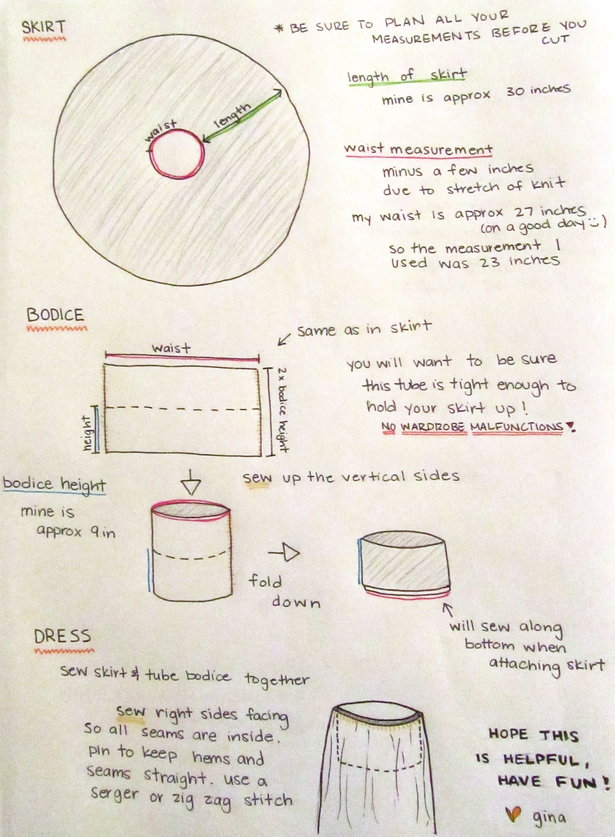 SKIRT
* BE SURE TO PLAN ALL YOUR
MEASUREMENTS BEFORE YOU
CUT
length of skirt
mine is approx 30 inches
waist
length
waist measurement
minus a few inches
due to stretch of knit
my waist is approx 27 inches
(on a good day :)
so the measurement I
used was 23 inches
BODICE
same as in skirt
waist
height
2x bodice height
you will want to be sure
this tube is tight enough to
hold your skirt up!
NO WARDROBE MALFUNCTIONS!
sew up the vertical sides
bodice height
mine is
approx 9in
fold
down
will sew along
bottom when
attaching skirt
DRESS
sew skirt & tube bodice together
sew right sides facing
so all seams are inside.
pin to keep hems and
seams straight. use a
serger or zig zag stitch
HOPE THIS
IS HELPFUL,
HAVE FUN!
gina